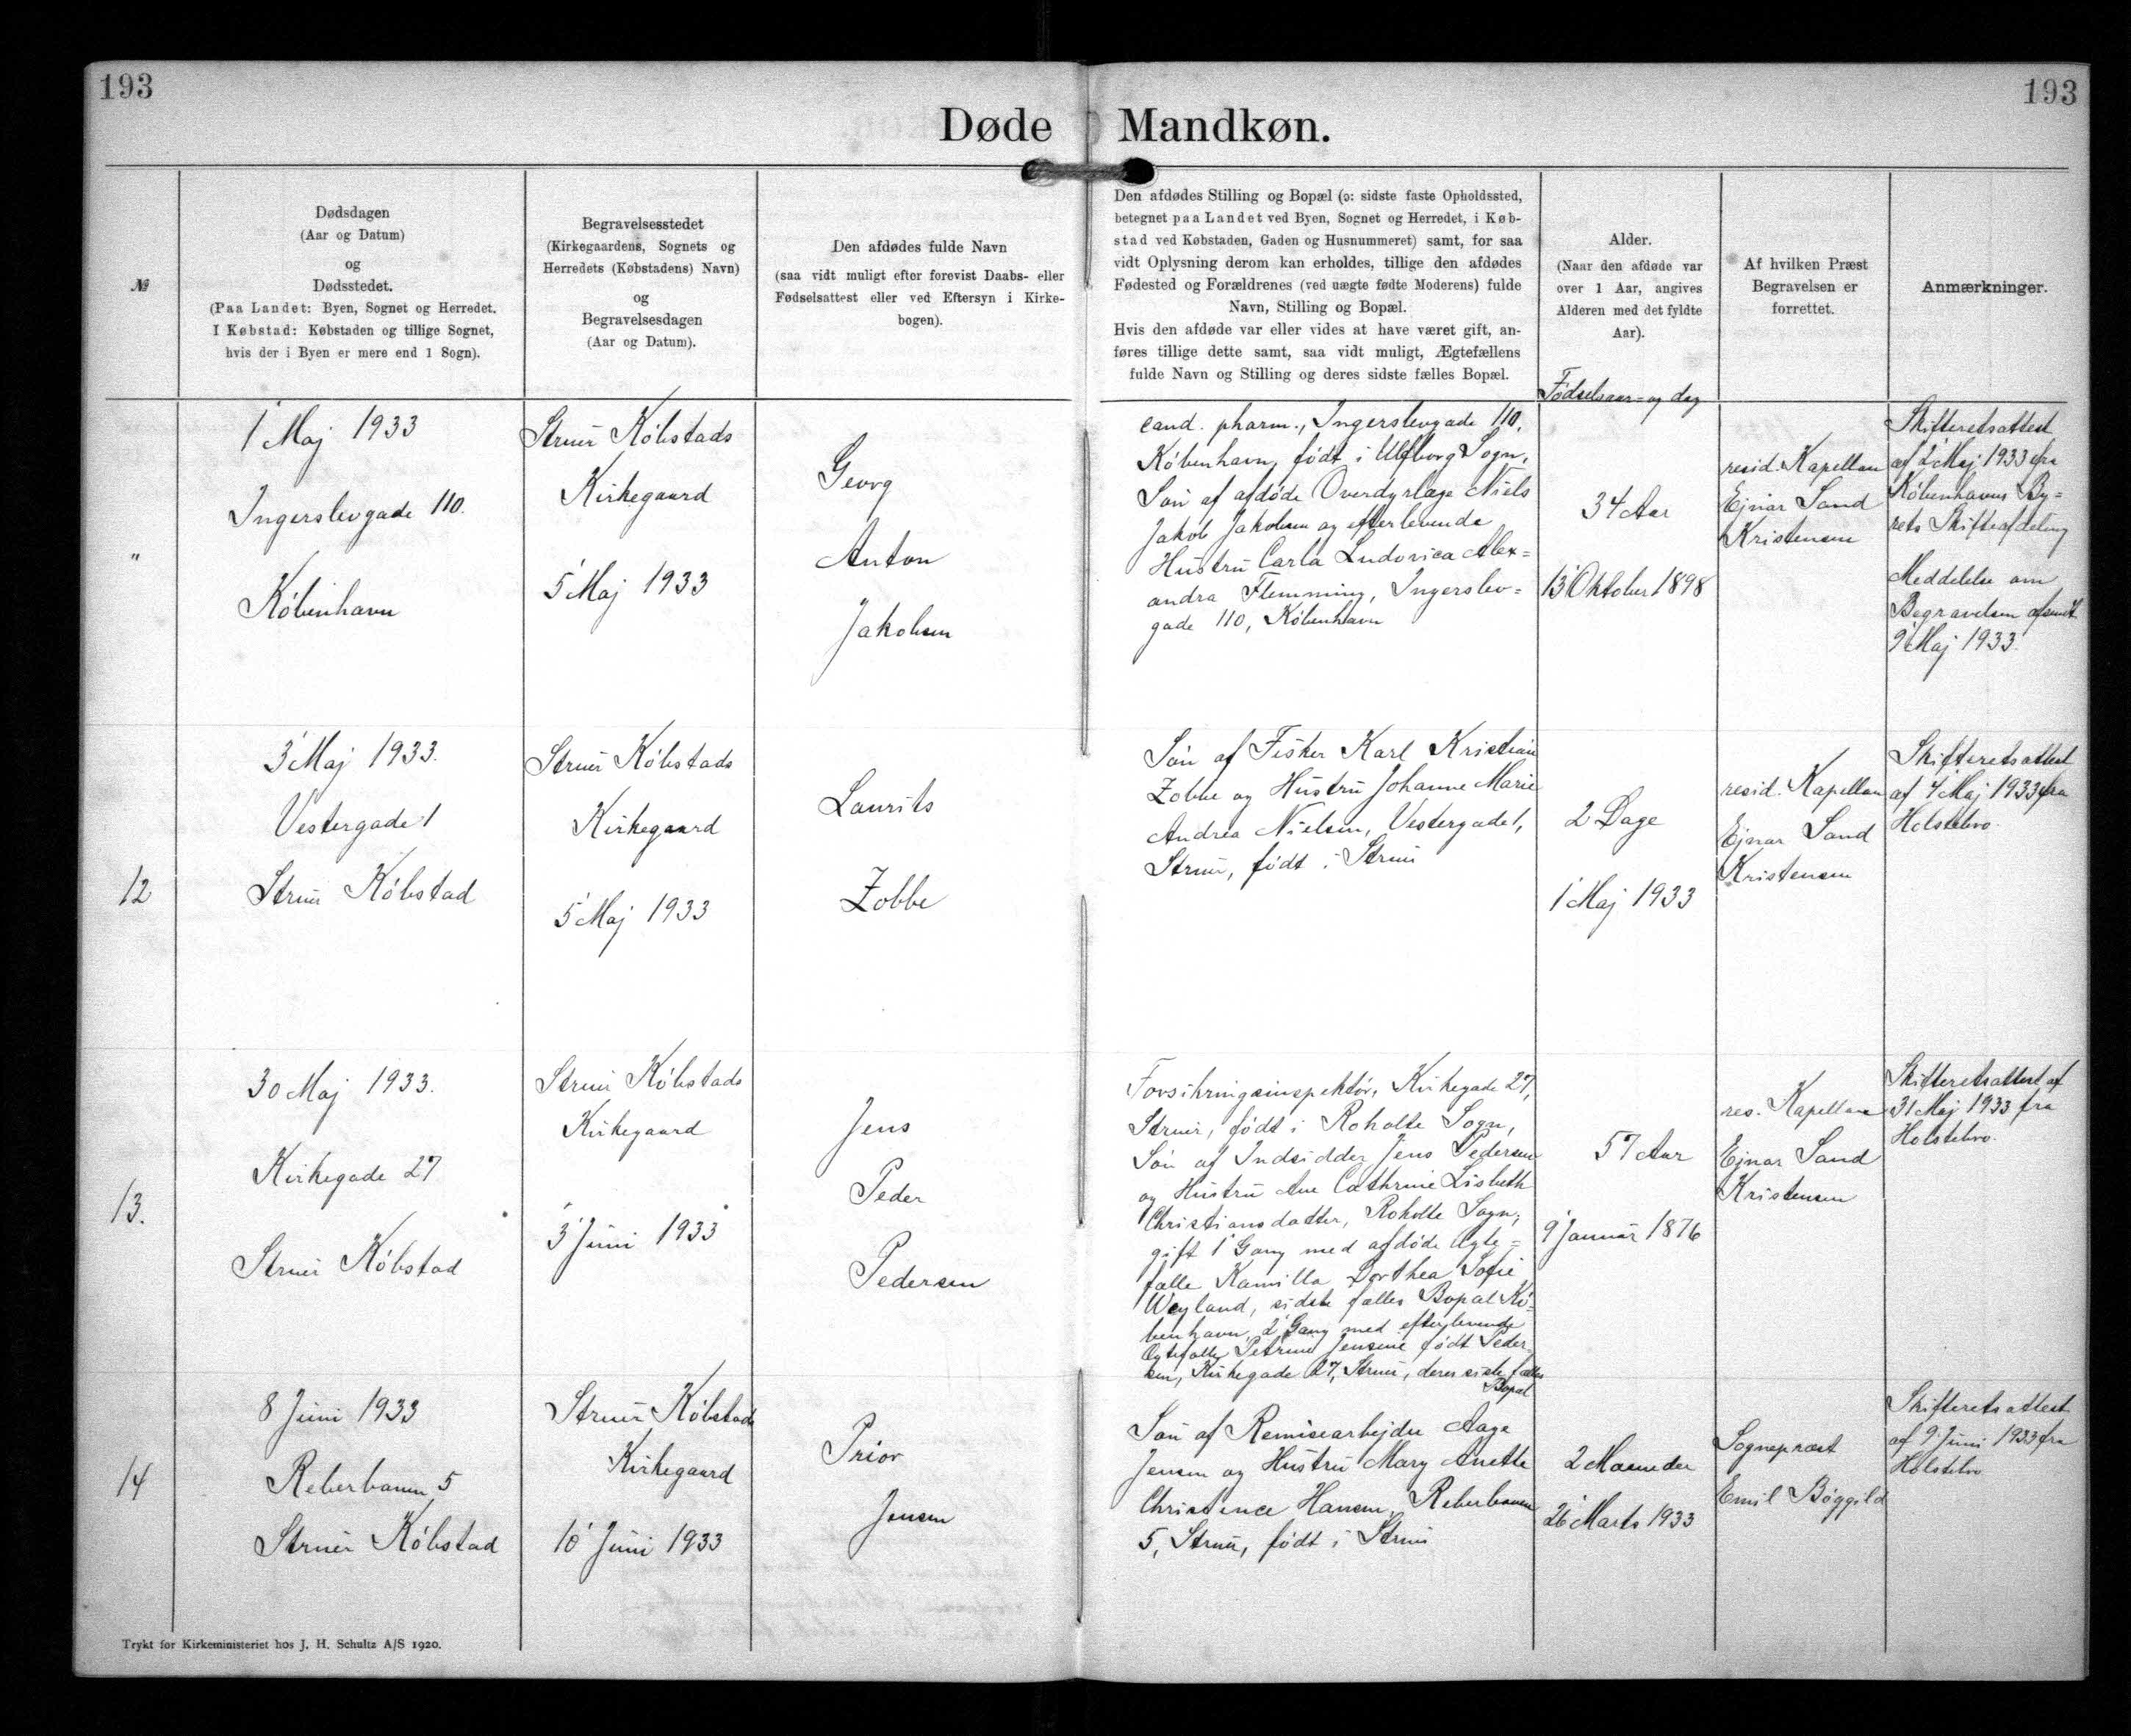 193
193
Døde Mandkøn.
№
Dødsdagen
(Aar og Datum)
og
Dødsstedet.
(Paa Landet: Byen, Sognet og Herredet.
I Købstad: Købstaden og tillige Sognet,
hvis der i Byen er mere end 1 Sogn).
Begravelsesstedet
(Kirkegaardens, Sognets og
Herredets (Købstadens) Navn)
og
Begravelsesdagen
(Aar og Datum).
Den afdødes fulde Navn
(saa vidt muligt efter forevist Daabs- eller
Fødselsattest eller ved Eftersyn i Kirke-
bogen).
Den afdødes Stilling og Bopæl (ɔ: sidste faste Opholdssted,
betegnet paa Landet ved Byen, Sognet og Herredet, i Køb-
stad ved Købstaden, Gaden og Husnummeret) samt, for saa
vidt Oplysning derom kan erholdes, tillige den afdødes
Fødested og Forældrenes (ved uægte fødte Moderens) fulde
Navn, Stilling og Bopæl.
Hvis den afdøde var eller vides at have været gift, an-
føres tillige dette samt, saa vidt muligt, Ægtefællens
fulde Navn og Stilling og deres sidste fælles Bopæl.
Alder.
(Naar den afdøde var
over 1 Aar, angives
Alderen med det fyldte
Aar).
Fødselsaar- og dag
Af hvilken Præst
Begravelsen er
forrettet.
Anmærkninger.
"
1' Maj 1933
Ingerslevgade 110.
København
Struer Købstads
Kirkegaard
5' Maj 1933
Georg
Anton
Jakobsen
cand. pharm., Ingerslevgade 110,
København, født i Ulfborg Sogn,
Søn af afdøde Overdyrlæge Niels
Jakob Jakobsen og efterlevende
Hustru Carla Ludovica Alex=
andra Flemming, Ingerslev=
gade 110, København
34 Aar
13' Oktober 1898
resid. Kapellan
Ejnar Sand
Kristensen
Skifteretsattest
af 2' Maj 1933 fra
Københavns By=
rets Skifteafdeling
Meddelelse om
Begravelsen afsendt
9' Maj 1933.
12
3' Maj 1933.
Vestergade 1
Struer Købstad
Struer Købstads
Kirkegaard
5' Maj 1933
Laurits
Zobbe
Søn af Fisker Karl Kristian
Zobbe og Hustru Johanne Marie
Andrea Nielsen, Vestergade 1,
Struer, født i Struer
2 Dage
1' Maj 1933
resid. Kapellan
Ejnar Sand
Kristensen
Skifteretsattest
af 4' Maj 1933 fra
Holstebro.
13.
30 Maj 1933.
Kirkegade 27
Struer Købstad
Struer Købstads
Kirkegaard
3' Juni 1933
Jens
Peder
Pedersen
Forsikringsinspektør, Kirkegade 27,
Struer, født i Roholte Sogn,
Søn af Indsidder Jens Pedersen
og Hustru Ane Cathrine Lisbeth
Christiansdatter, Roholte Sogn;
gift 1' Gang med afdøde Ægte=
fælle Kamilla Dorthea Sofie
Weyland, sidste fælles Bopæl Kø=
benhavn, 2' Gang med efterlevende
Ægtefælle Petrine Jensine født Peder=
sen, Kirkegade 27, Struer, deres sidste fælles
Bopæl
57 Aar
9' Januar 1876
res. Kapellan
Ejnar Sand
Kristensen
Skifteretsattest af
31' Maj 1933 fra
Holstebro.
14
8' Juni 1933
Reberbanen 5
Struer Købstad
Struer Købstads
Kirkegaard
10' Juni 1933
Prior
Jensen
Søn af Remisearbejder Aage
Jensen og Hustru Mary Anette
Christence Hansen, Reberbanen
5, Struer, født i Struer
2 Maaneder
26' Marts 1933
Sognepræst
Emil Bøggild
Skifteretsattest
af 9' Juni 1933 fra
Holstebro
Trykt for Kirkeministeriet hos J. H. Schultz A/S 1920.